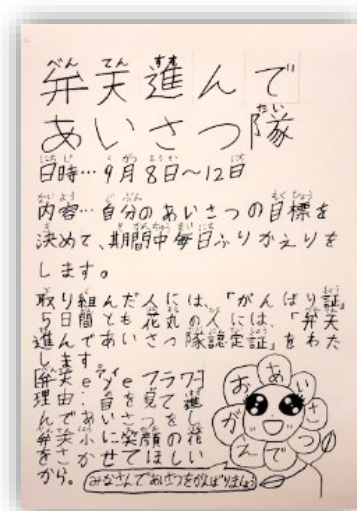 弁天進んで
あいさつ隊
日時…9月8日～12日
内容…自分のあいさつの目標を
決めて、期間中毎日ふりかえりを
します。
取り組んだ人には、「がんばり証」
5日間とも花丸の人には、「弁天
進んであいさつ隊認定証」をわた
します。
[弁天eyeフラワー]
理由…目を見て進
んであいさつをし
弁天小に笑顔の花
をさかせてほしい
から。
あいさつでえがお
みなさんであいさつをがんばりましょう